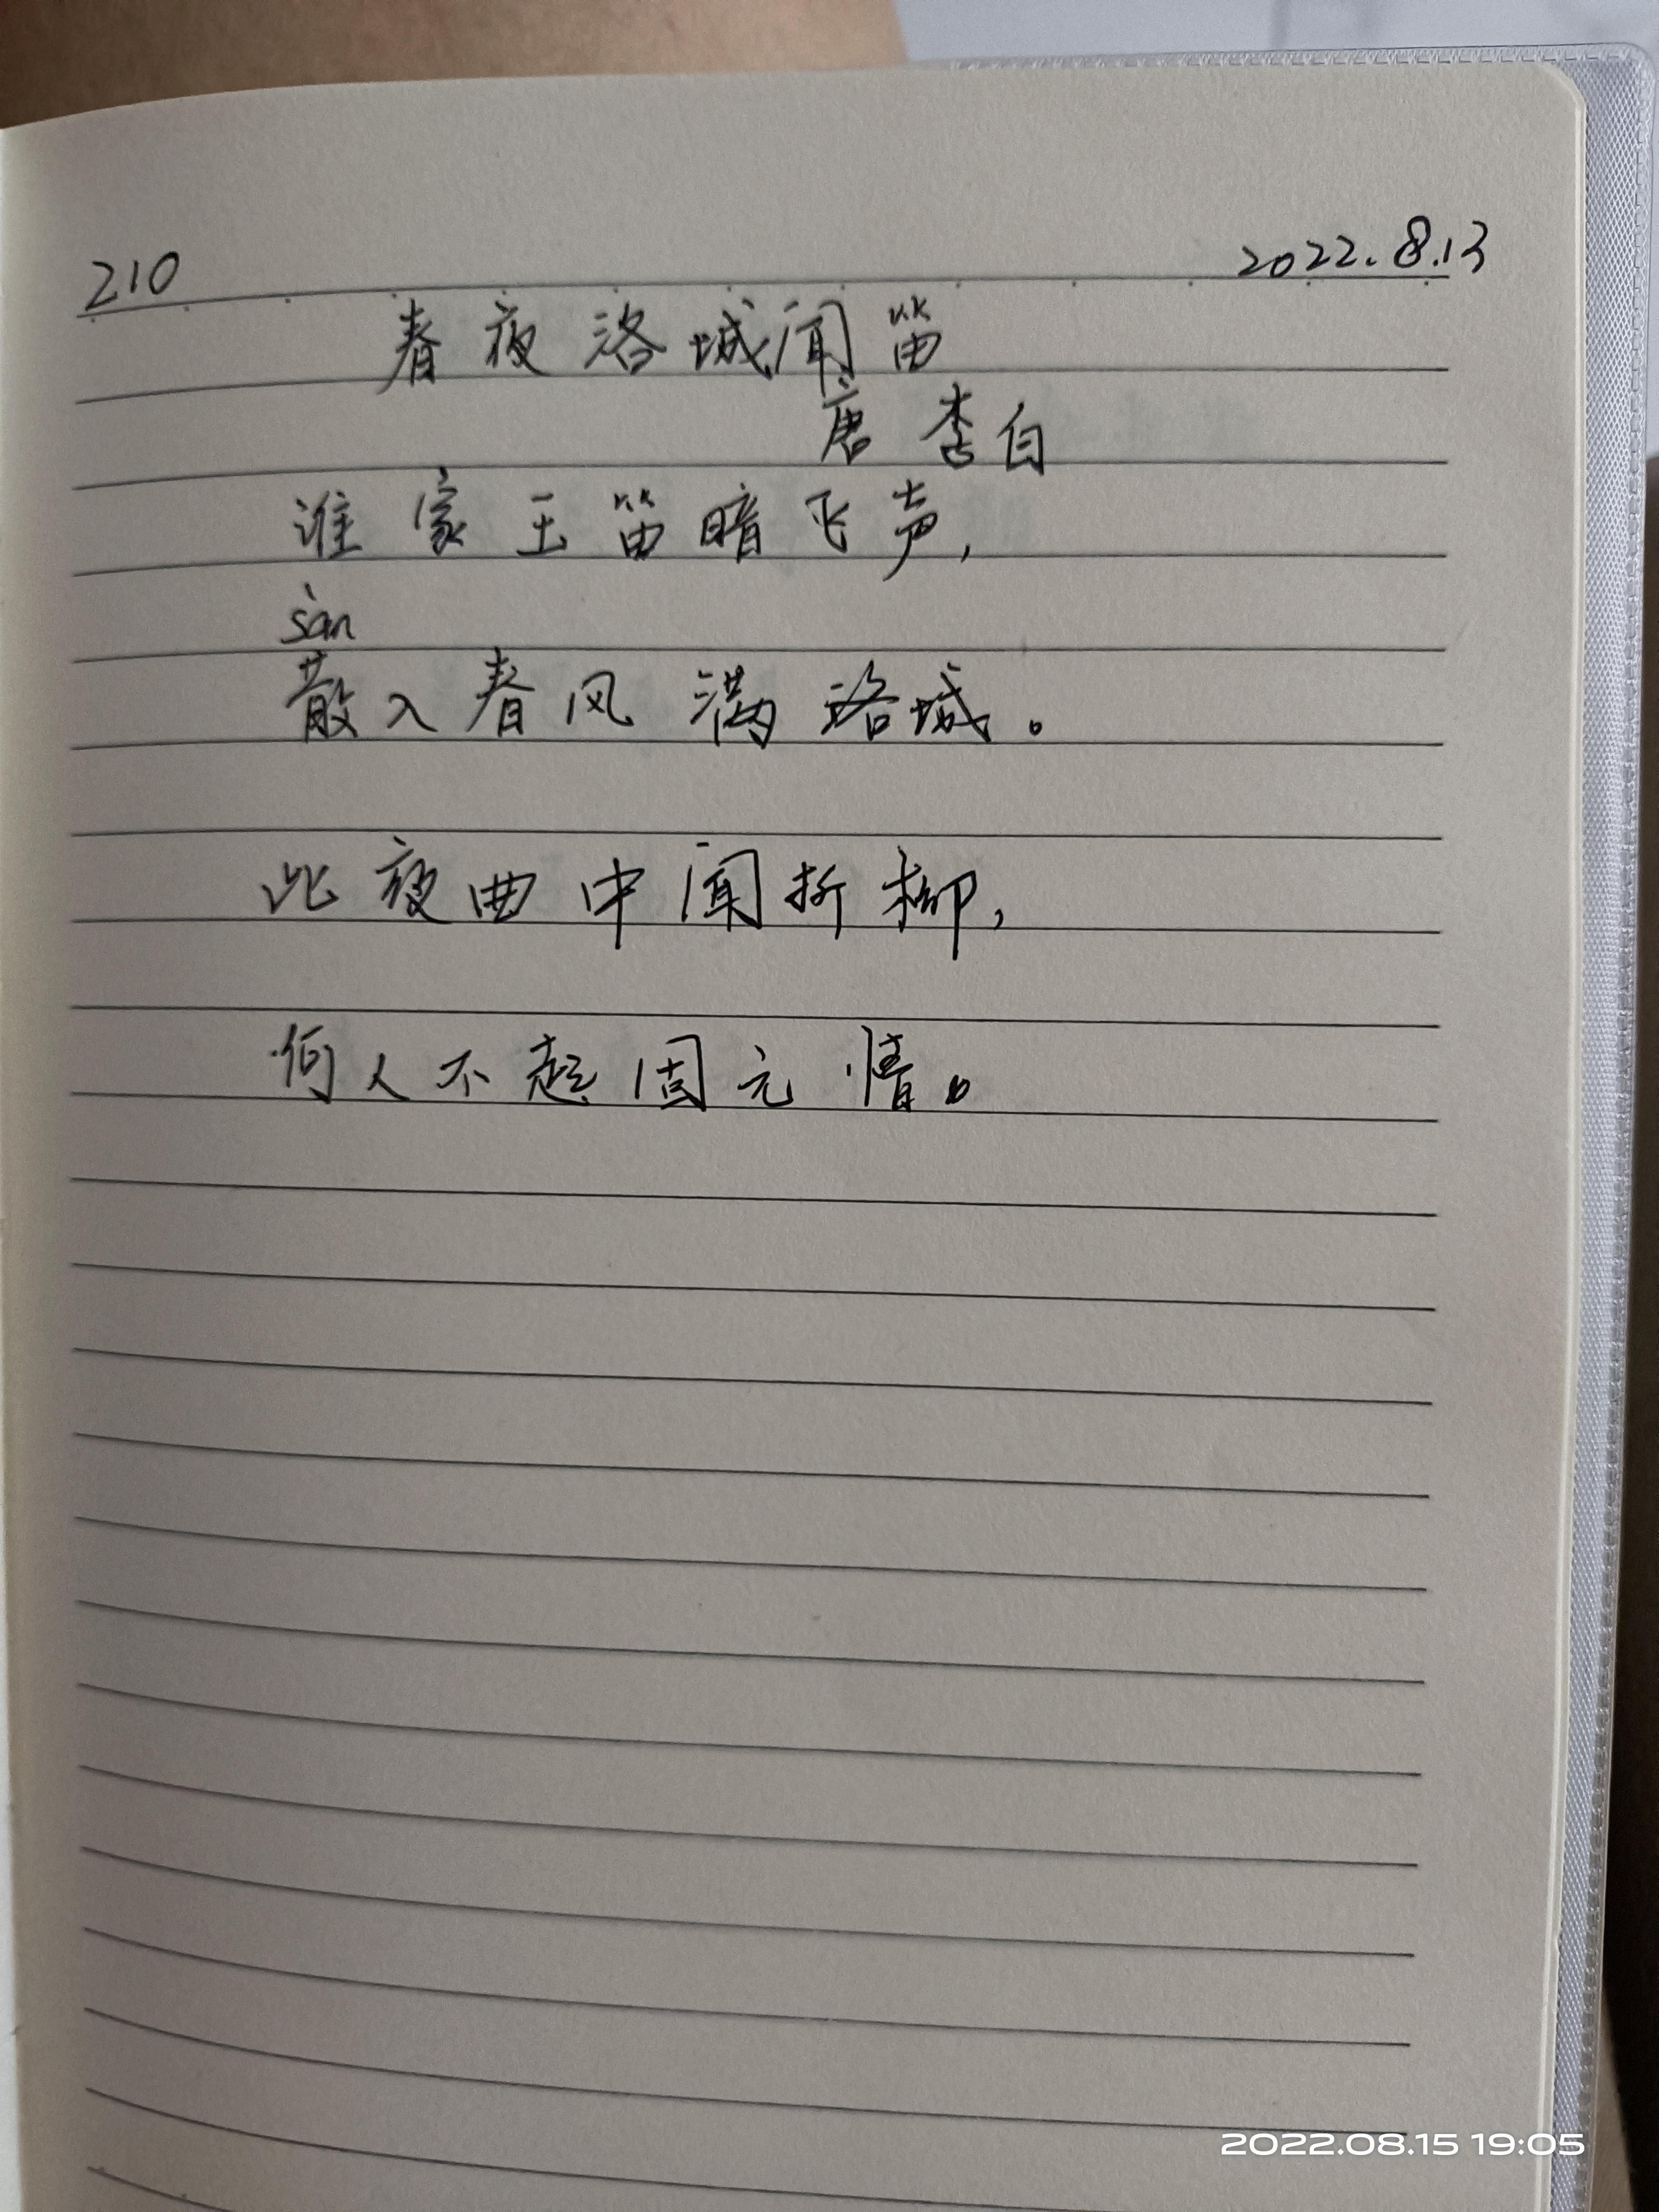 210 2022.8.13
春夜洛城闻笛
唐 李白
谁家玉笛暗飞声，
sàn
散入春风满洛城。
此夜曲中闻折柳，
何人不起固元情。
2022.08.15 19:05